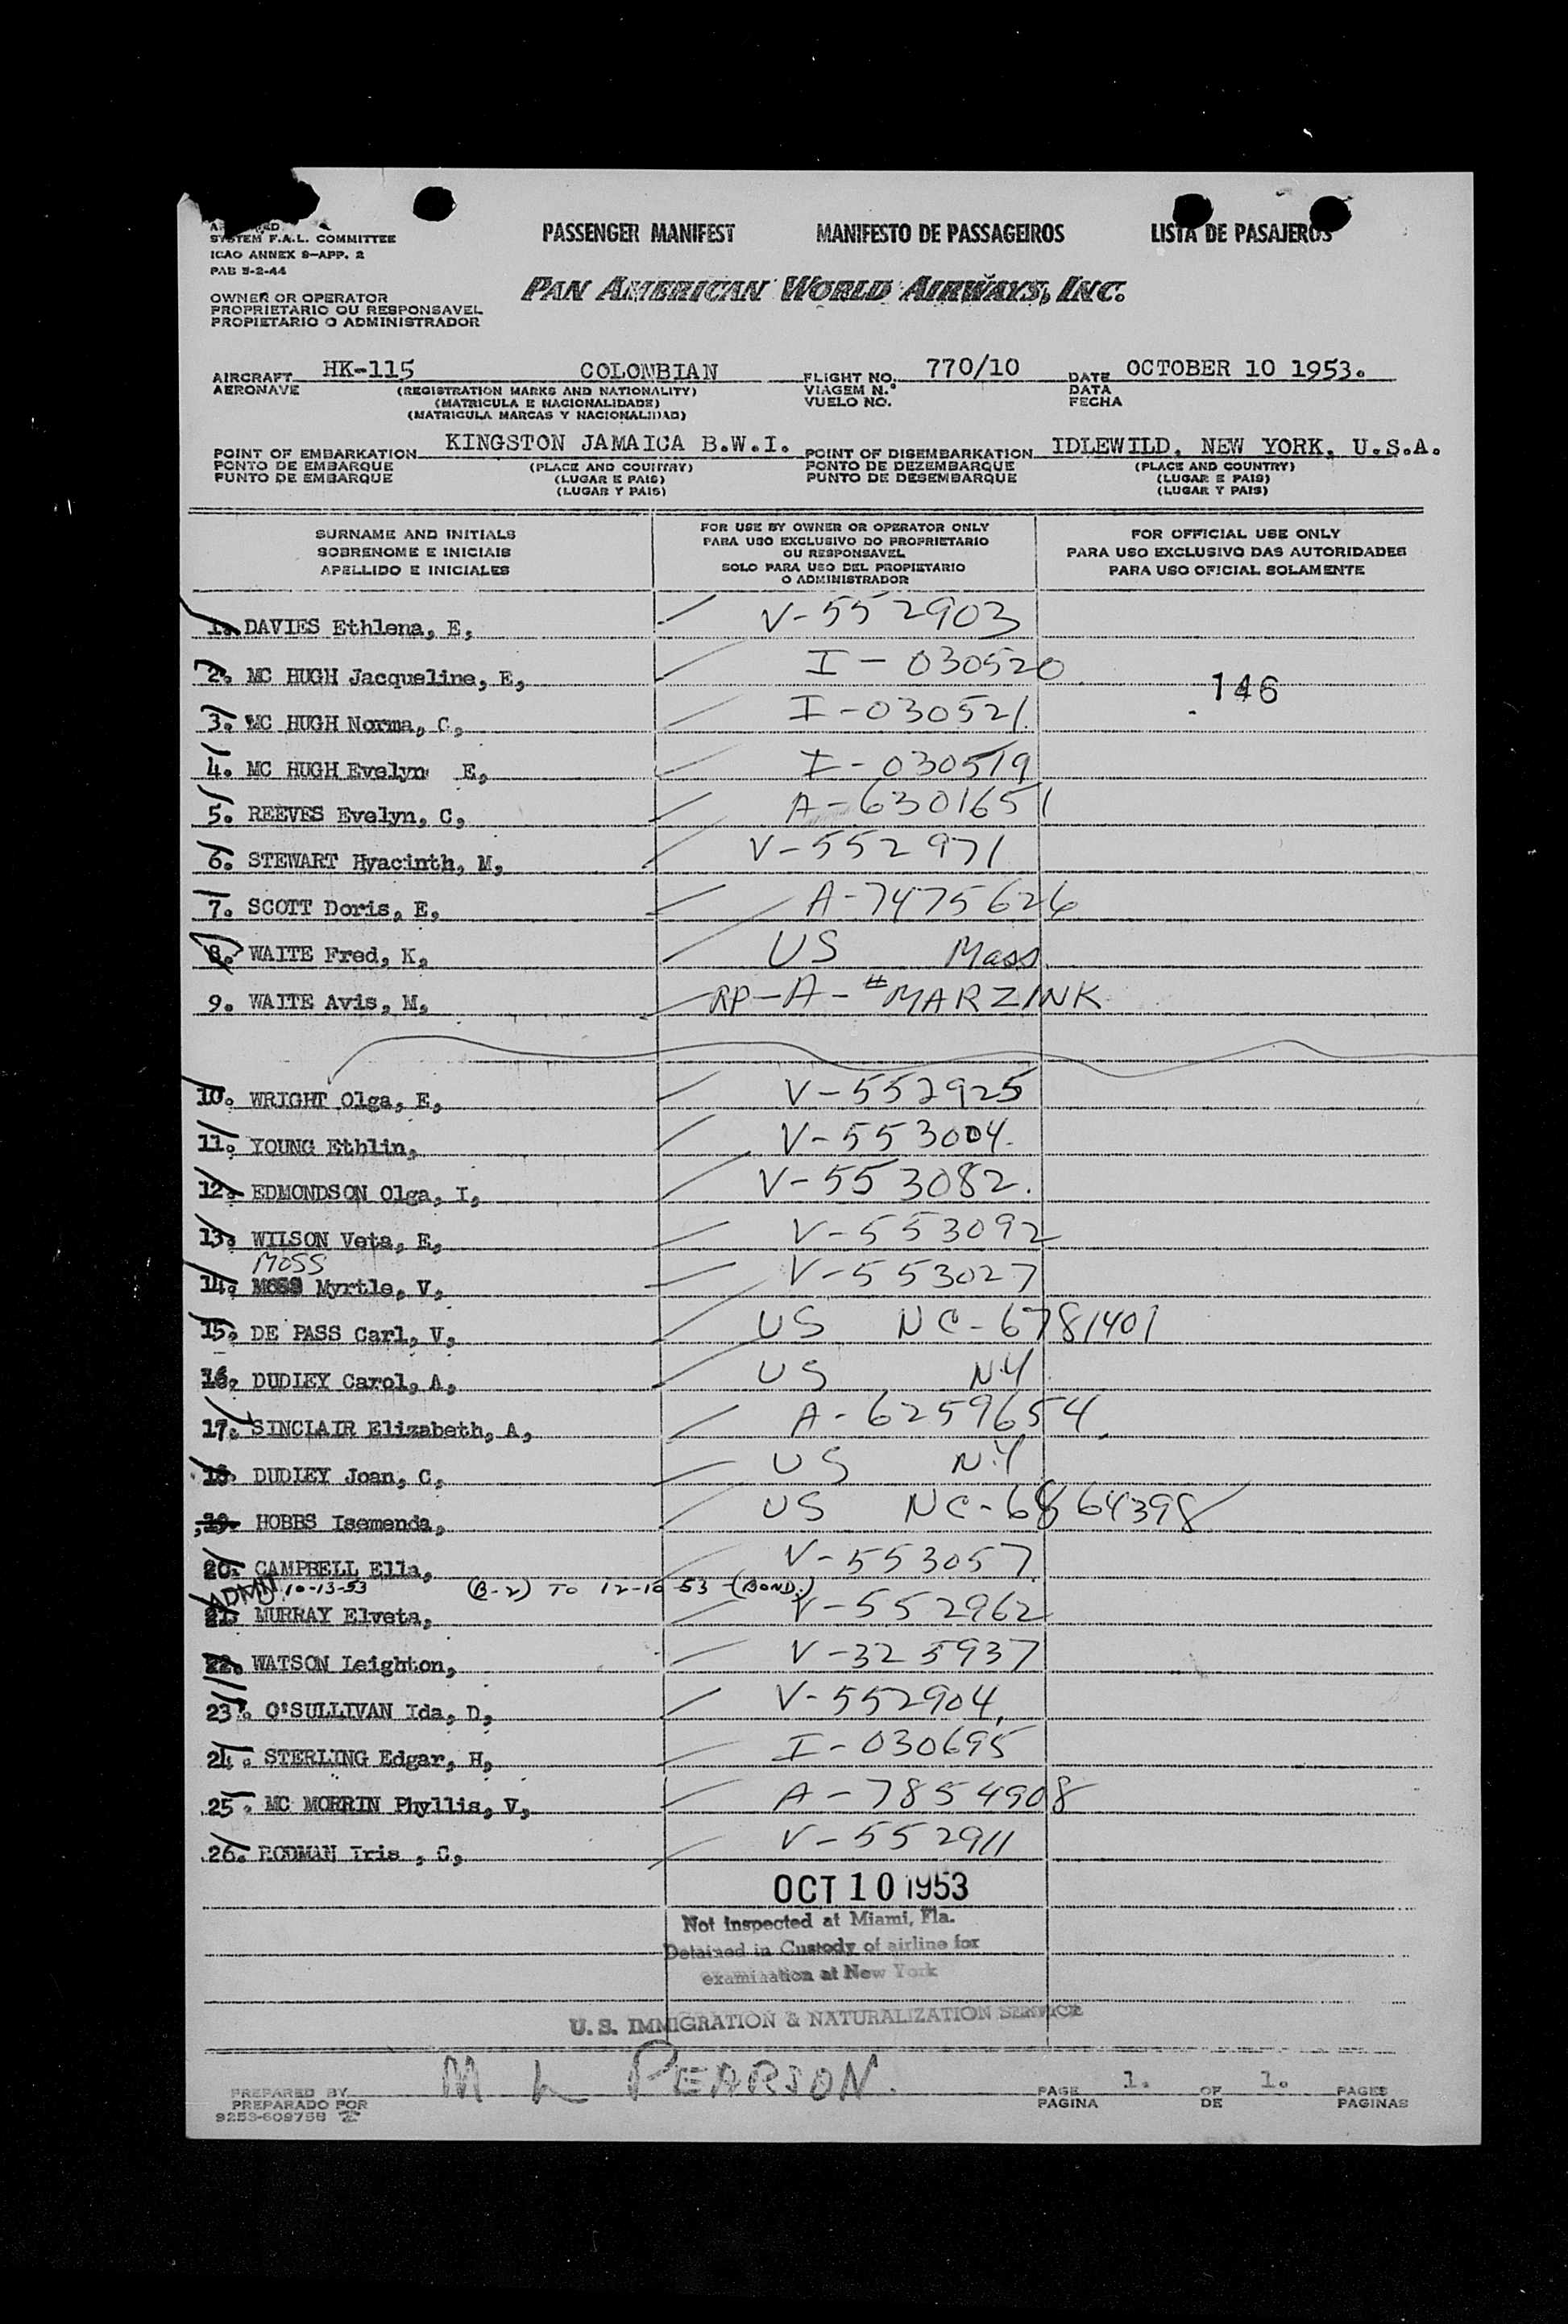 SYSTEM F.A.L. COMMITTEE
ICAO ANNEX 9-APP. 2
PAB 5-2-44
PASSENGER MANIFEST MANIFESTO DE PASSAGEIROS LISTA DE PASAJEROS
PAN AMERICAN WORLD AIRWAYS, INC.
OWNER OR OPERATOR
PROPRIETARIO OU RESPONSAVEL
PROPIETARIO O ADMINISTRADOR
AIRCRAFT HK-115 COLOMBIAN FLIGHT NO. 770/10 DATE OCTOBER 10 1953.
AERONAVE (REGISTRATION MARKS AND NATIONALITY) VIAGEM N.º DATA
(MATRICULA E NACIONALIDADE) VUELO NO. FECHA
(MATRICULA MARCAS Y NACIONALIDAD)
POINT OF EMBARKATION KINGSTON JAMAICA B.W.I. POINT OF DISEMBARKATION IDLEWILD, NEW YORK, U.S.A.
PONTO DE EMBARQUE (PLACE AND COUNTRY) PONTO DE DEZEMBARQUE (PLACE AND COUNTRY)
PUNTO DE EMBARQUE (LUGAR E PAIS) PUNTO DE DESEMBARQUE (LUGAR E PAIS)
(LUGAR Y PAIS) (LUGAR Y PAIS)
SURNAME AND INITIALS
SOBRENOME E INICIAIS
APELLIDO E INICIALES
FOR USE BY OWNER OR OPERATOR ONLY
PARA USO EXCLUSIVO DO PROPRIETARIO
OU RESPONSAVEL
SOLO PARA USO DEL PROPIETARIO
O ADMINISTRADOR
FOR OFFICIAL USE ONLY
PARA USO EXCLUSIVO DAS AUTORIDADES
PARA USO OFICIAL SOLAMENTE
1. DAVIES Ethlena, E, V-552903
2. MC HUGH Jacqueline, E, I-030520
146
3. MC HUGH Norma, C, I-030521
4. MC HUGH Evelyn E, I-030519
5. REEVES Evelyn, C, A-6301651
6. STEWART Hyacinth, M, V-552971
7. SCOTT Doris, E, A-7475626
8. WAITE Fred, K, US Mass
9. WAITE Avis, M, RP-A-#MARZINK
10. WRIGHT Olga, E, V-552925
11. YOUNG Ethlin, V-553004.
12. EDMONDSON Olga, I, V-553082.
13. WILSON Veta, E, V-553092
MOSS
14. MOSS Myrtle, V, V-553027
15. DE PASS Carl, V, US NC-6781401
16. DUDLEY Carol, A, US N.Y.
17. SINCLAIR Elizabeth, A, A-6259654
18. DUDLEY Joan, C, US N.Y
19. HOBBS Isemenda, US NC-6864398
20. CAMPBELL Ella, V-553057
ADMN 10-13-53 (B-2) TO 12-10-53 (BOND.)
21. MURRAY Elveta, V-552962
22. WATSON Leighton, V-325937
23. O'SULLIVAN Ida, D, V-552904
24. STERLING Edgar, H, I-030695
25. MC MORRIN Phyllis, V, A-7854908
26. RODMAN Iris , C, V-552911
OCT 10 1953
Not Inspected at Miami, Fla.
Detained in Custody of airline for
examination at New York
U.S. IMMIGRATION & NATURALIZATION SERVICE
M L PEARSON.
PREPARED BY PAGE 1. OF 1. PAGES
PREPARADO POR PAGINA DE PAGINAS
9253-60975B